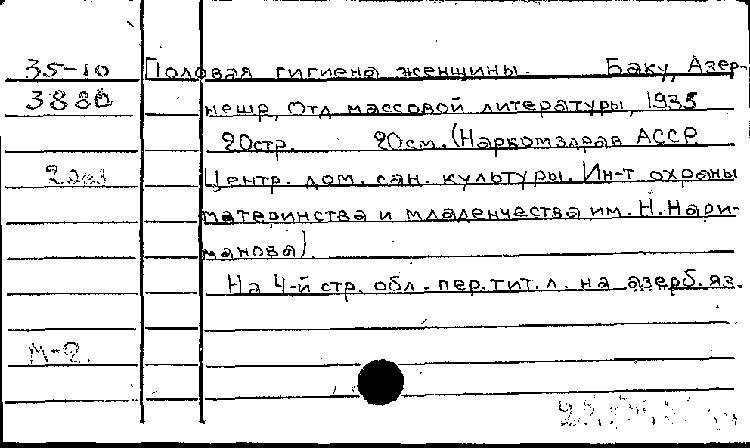 35-10 Половая гигиена женщины. Баку, Азер-
3880 нешр, Отд. массовой литературы, 1935
20стр. 20см. (Наркомздрав АССР.
2 экз Центр. дом. сан. культуры. Ин-т охраны
материнства и младенчества им. Н. Нари-
манова).
На 4-й стр. обл. пер. тит. л. на азерб. яз.
М-2.